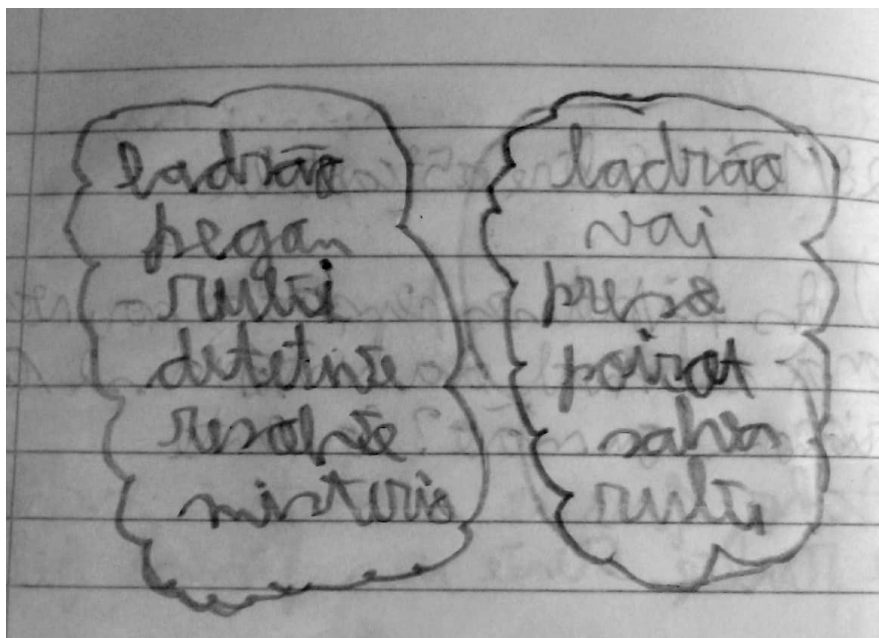 ladrão
pegan
rubi
detetive
resolve
misterio
ladrão
vai
preso
poirot
salva
rubi